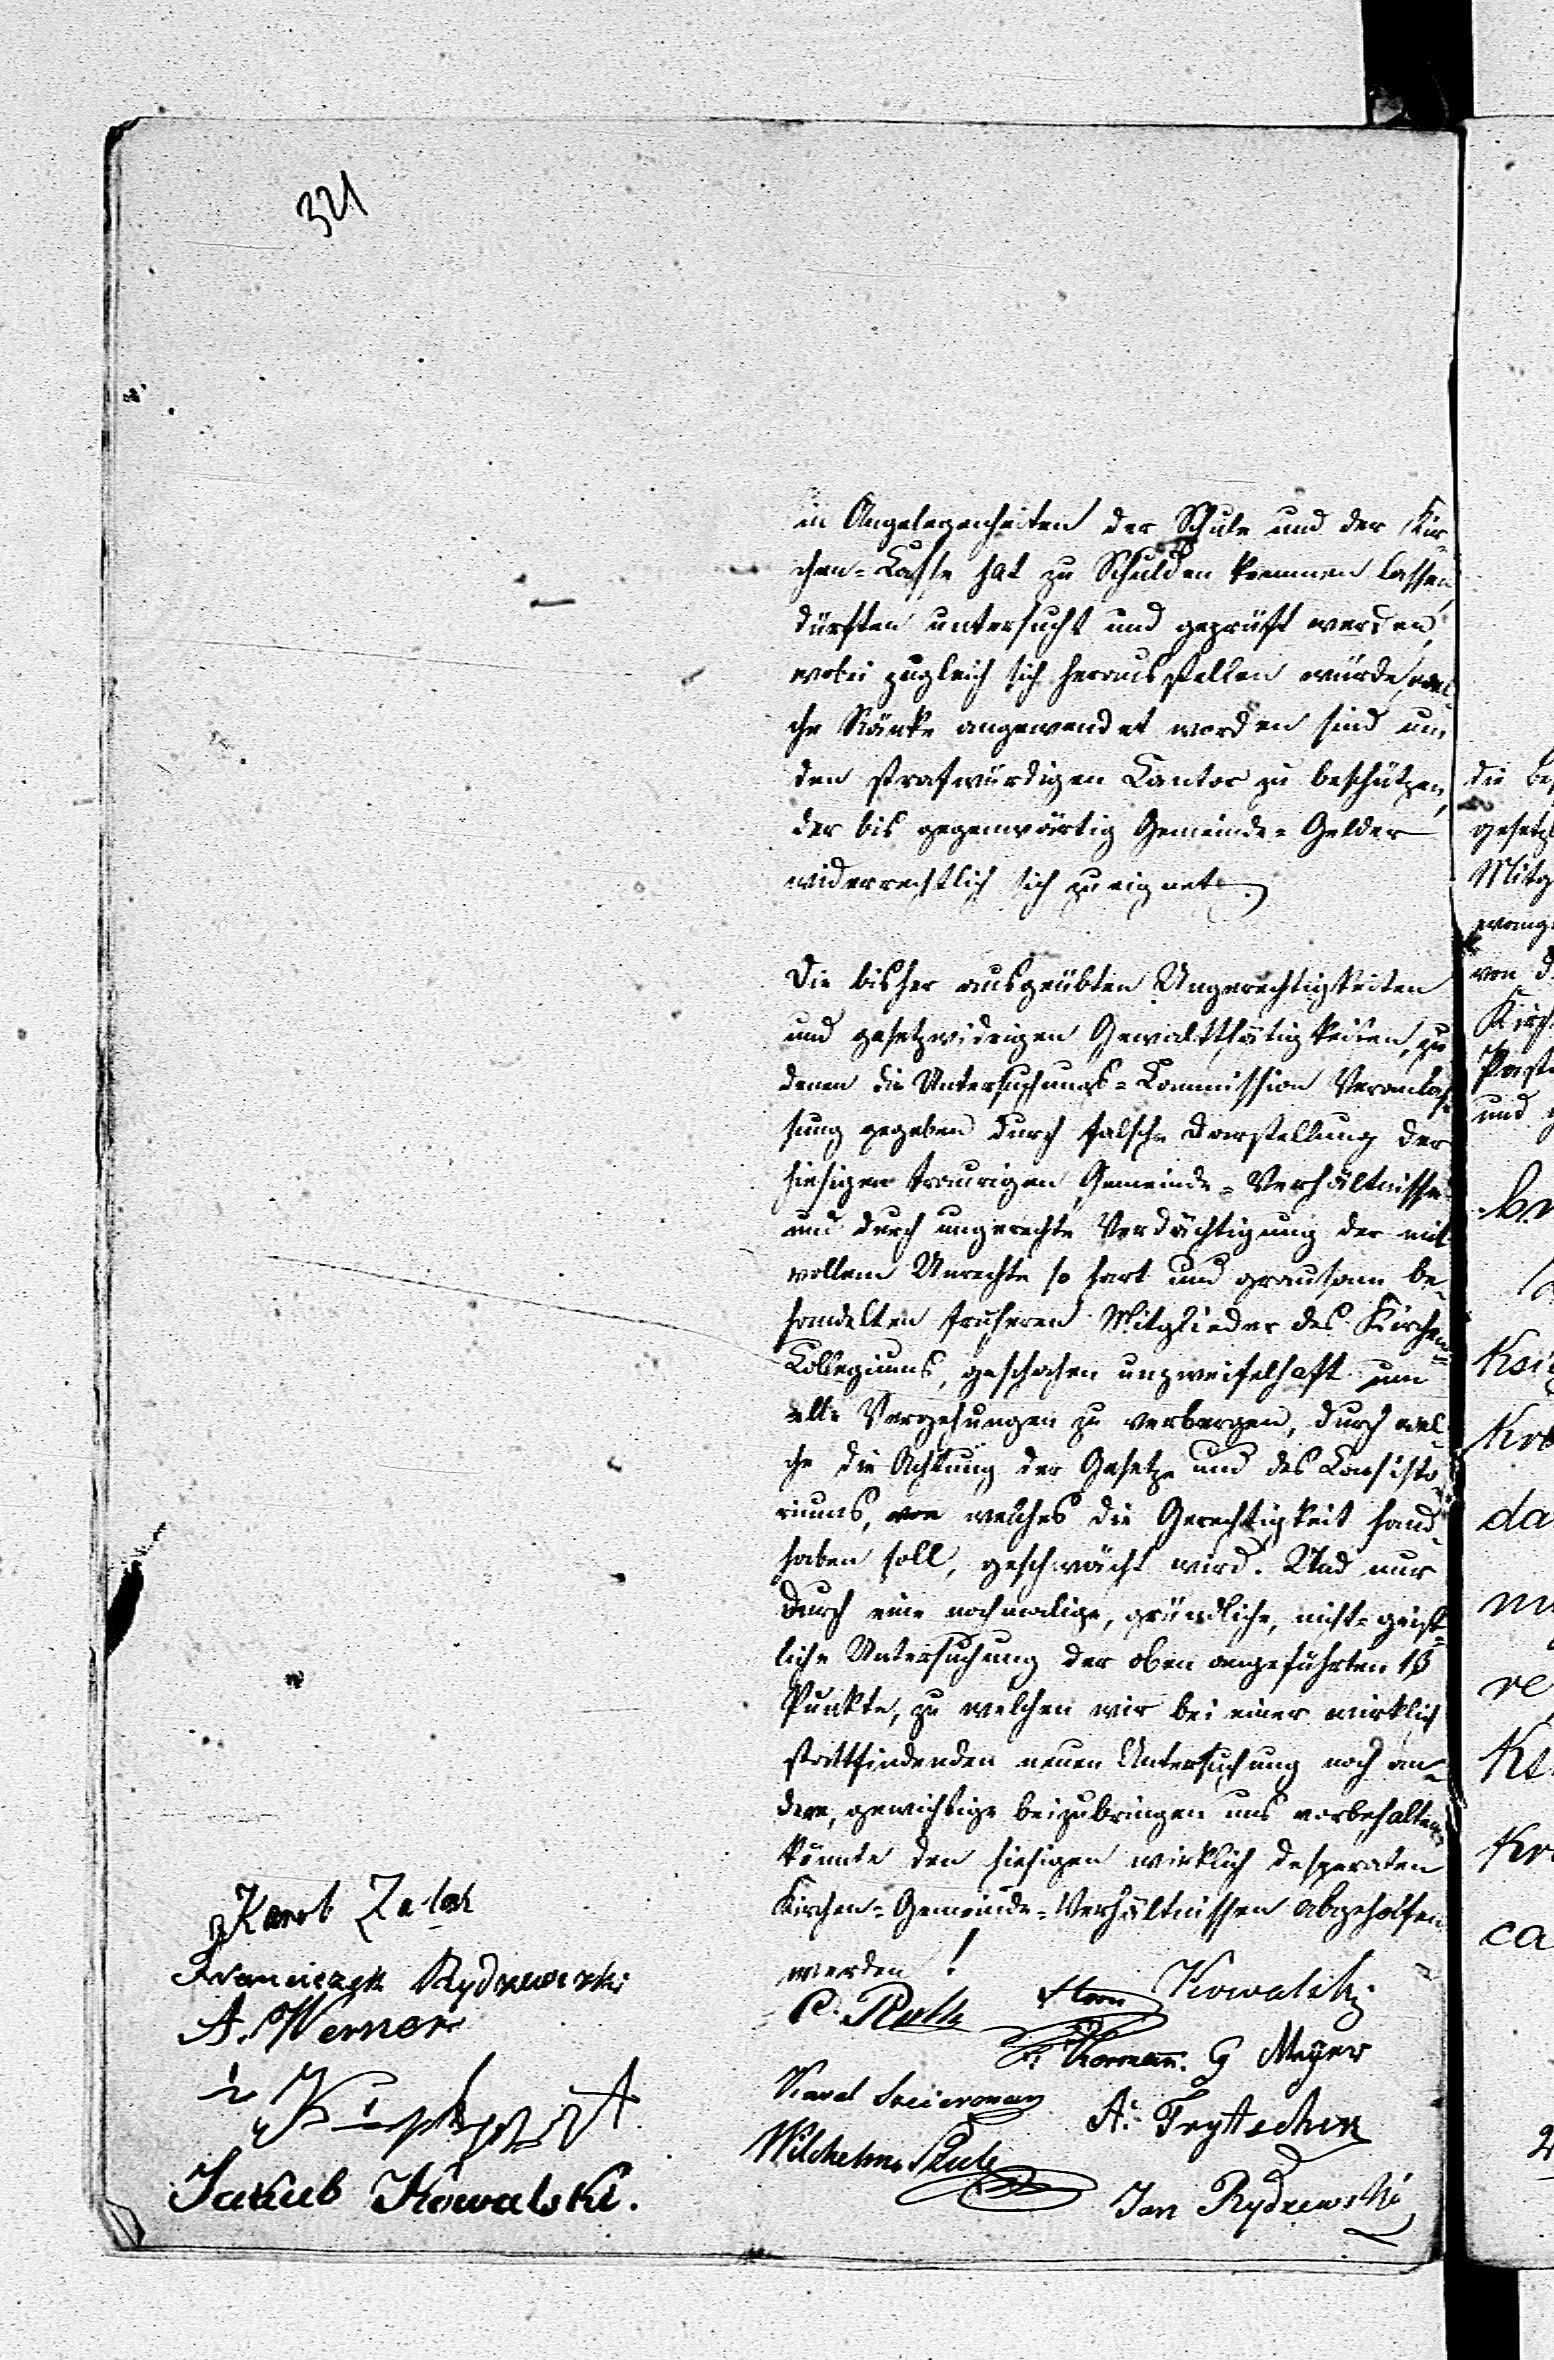 321
in Angelegenheiten der Schule und der Kir-
chen-Kasse hat zu Schulden kommen lassen,
dürften untersucht und geprüft werden,
wobei zugleich sich herausstellen würde, wel-
che Ränke angewendet worden sind um
den strafwürdigen Cantor zu beschützen,
der bis gegenwärtig Gemeinde-Gelder
widerrechtlich sich zueignet.
Die bisher ausgeübten Ungerechtigkeiten
und gesetzwidrigen Gewaltthätigkeiten, zu
denen die Untersuchungs-Commission Veranlas-
sung gegeben durch falsche Darstellung der
hiesigen traurigen Gemeinde-Verhältnisse
und durch ungerechte Verdächtigung der mit
vollem Unrechte so hart und grausam be-
handelten früheren Mitglieder des Kirchen-
Collegiums, geschahen unzweifelhaft um
alle Vergehungen zu verbergen, durch wel-
che die Achtung der Gesetze und des Consisto-
riums, welches die Gerechtigkeit hand-
haben soll, geschwächt wird. Und nur
durch eine nochmalige, gründliche, nicht-geist-
liche Untersuchung der oben angeführten 13
Punkte, zu welchen wir bei einer wirklich
stattfindenden neuen Untersuchung noch an-
dere, gewichtige beizubringen uns vorbehalten,
könnte den hiesigen wirklich desperaten
Kirchen-Gemeinde-Verhältnissen abgeholfen
werden!
Kowalski
G Meyer
Karol
A. Frytschen
Wilchelm
Jan Rydzewski
Franciczek Rydzewski
A. Werner
Jakub Kowalski.
die
gesetz
Mitg
von d
Kirch
Past
und
Ksi
da
re
ca